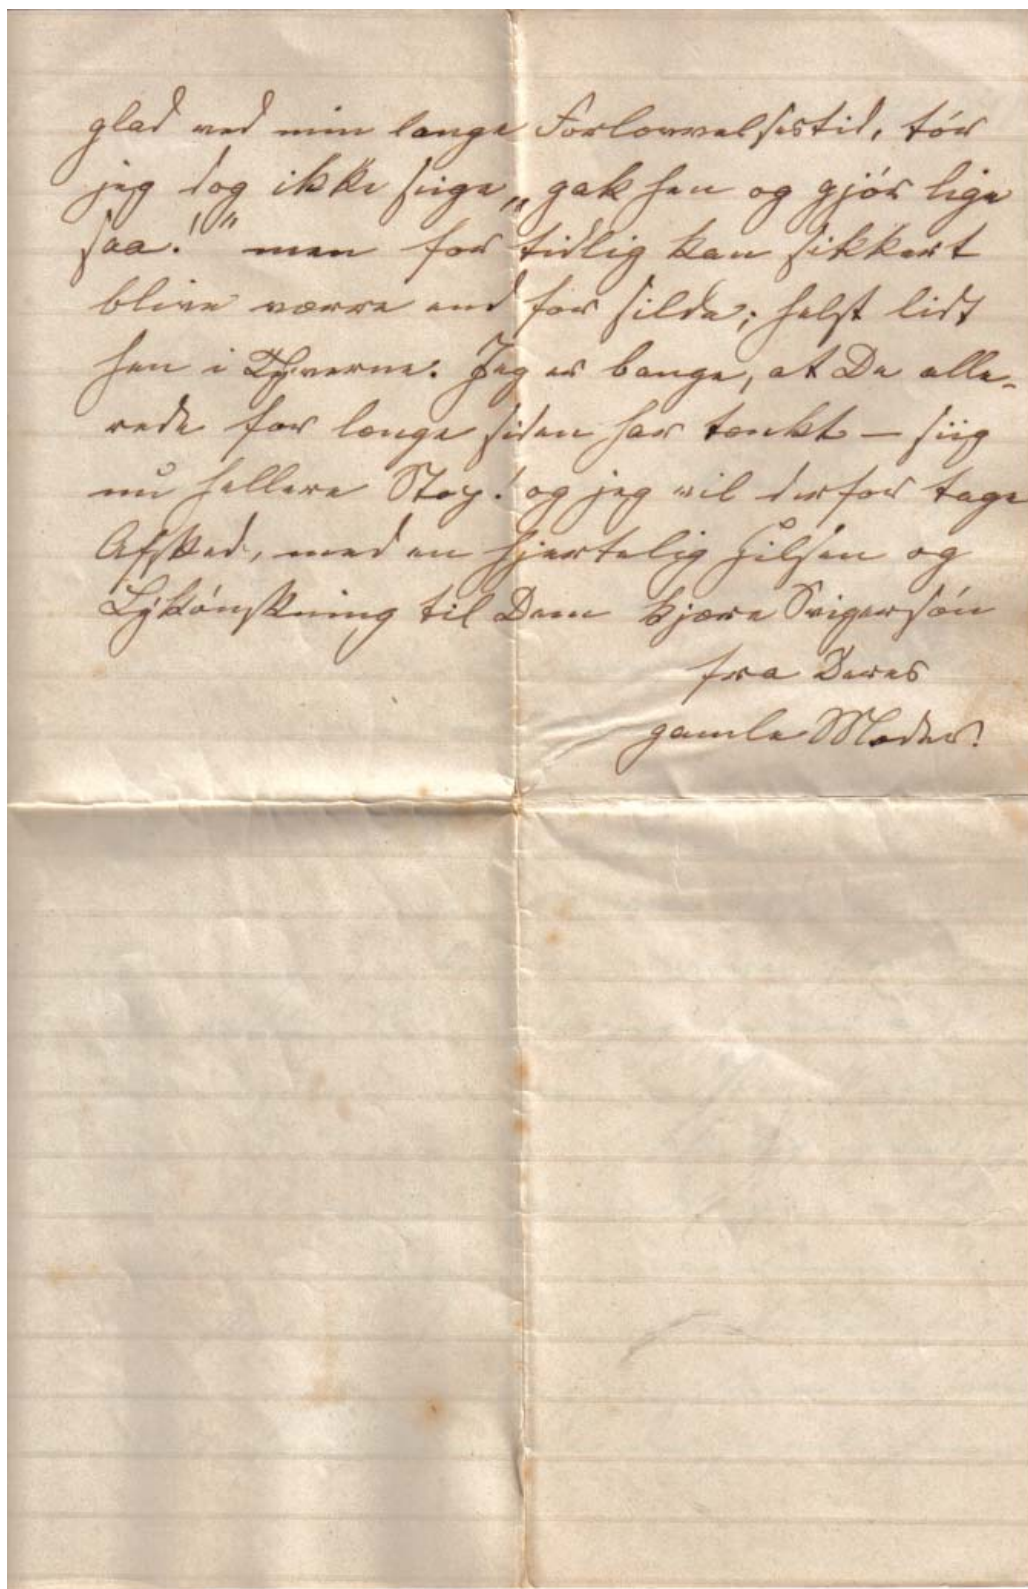 glad ved min lange Forlovelsestid, tør
jeg dog ikke siige „gak hen og gjør lige
saa!“ men for tidlig kan sikkert
blive værre end for silde; helst lidt
hen i Tyverne. Jeg er bange, at De alle-
rede for længe siden har tænkt — siig
nu hellere Stop! og jeg vil derfor tage
Afsked, med en hjertelig Hilsen og
Lykønskning til Dem kjære Svigersøn
fra Deres
gamle Moder.